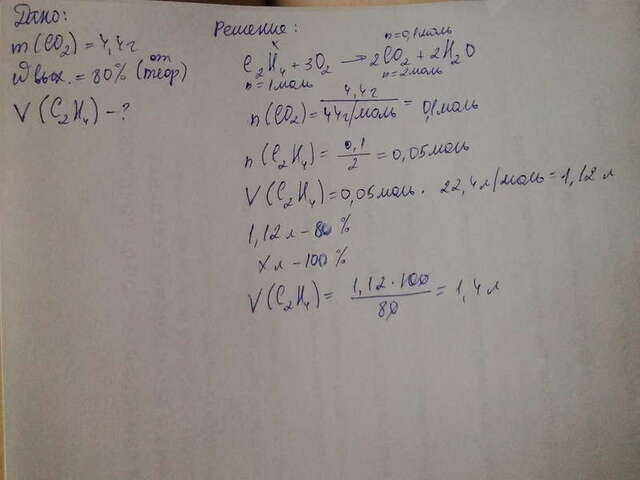 Дано:
m(CO₂) = 4,4г
ωвых. = 80% (от теор)
V(C₂H₄) - ?
Решение:
x n=0,1моль
C₂H₄ + 3O₂ → 2CO₂ + 2H₂O
n=1моль n=2моль
n(CO₂) = 4,4г / 44г/моль = 0,1моль
n(C₂H₄) = 0,1 / 2 = 0,05моль
V(C₂H₄) = 0,05моль · 22,4л/моль = 1,12л
1,12л - 80%
xл - 100%
V(C₂H₄) = 1,12·100 / 80 = 1,4л